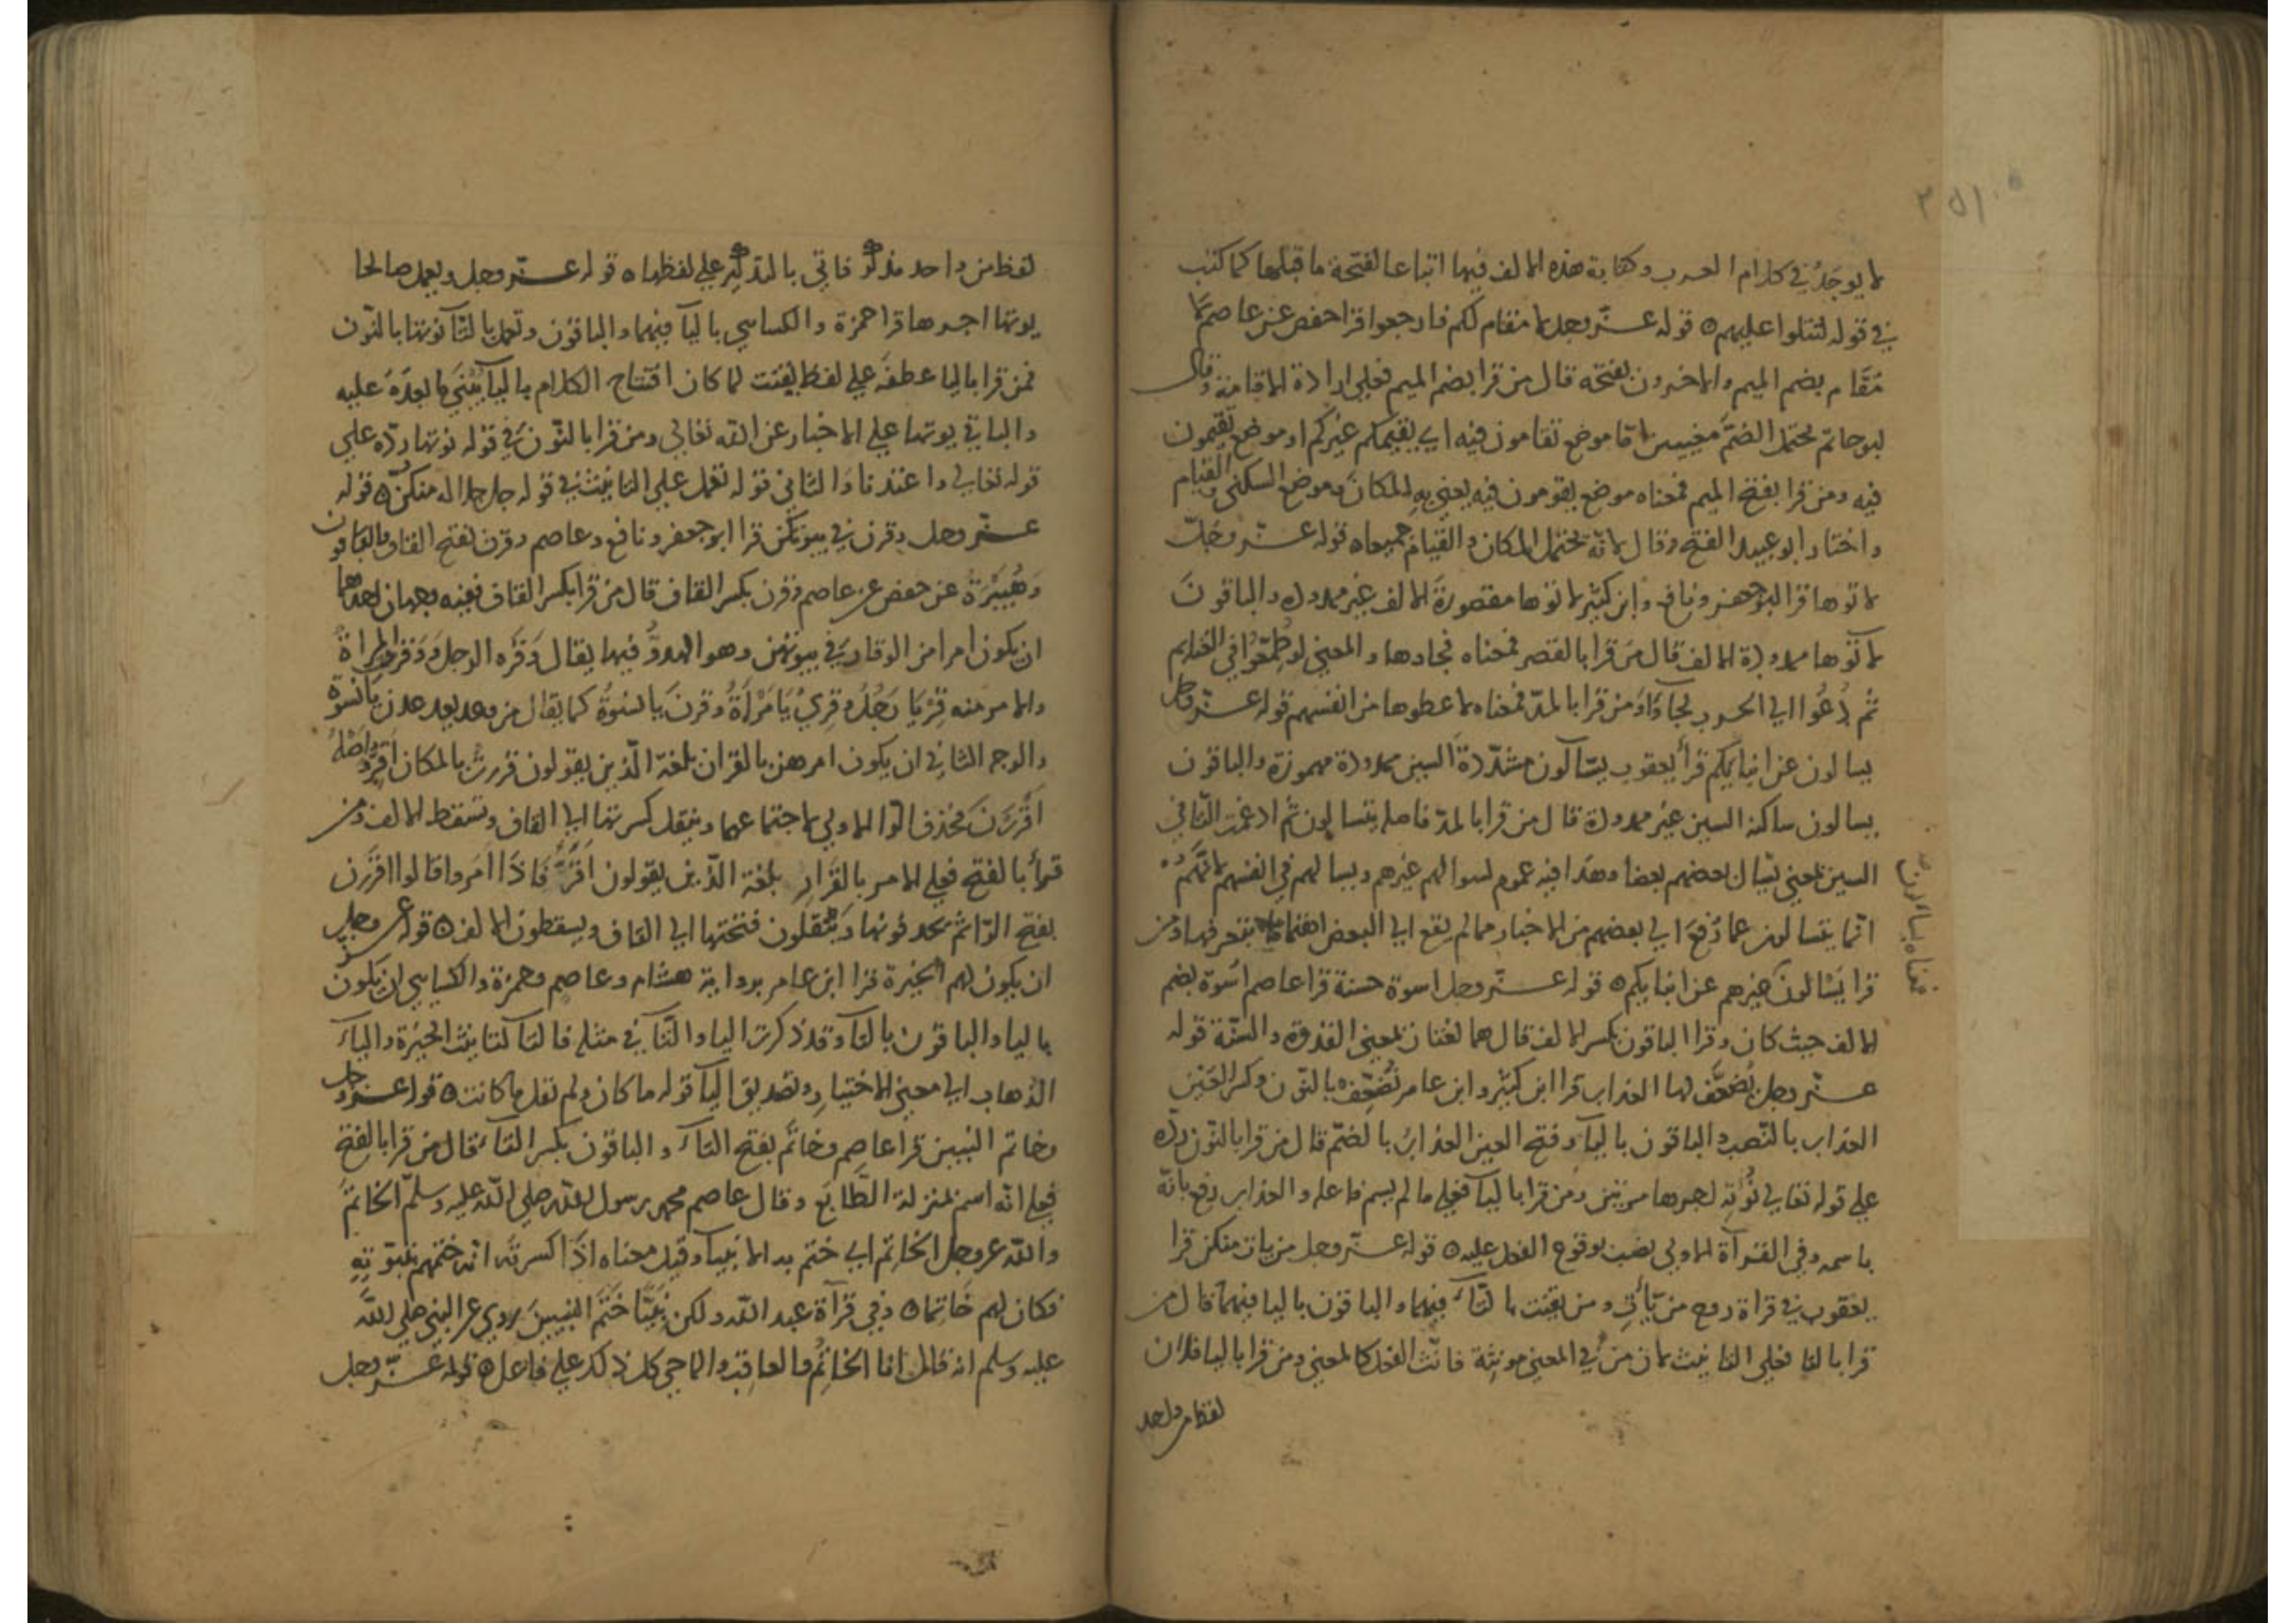 لا يوجد في كلام العرب وكتابة هذه الالف فيها اتباعا لفتحة ما قبلها كما كتب
في قوله لتتلوا عليهم ه قوله عز وجل لا مقام لكم فارجعوا قرا حفص عن عاصم لا
مُقام بضم الميم والاخرون بفتحه قال من قرا بضم الميم فعلى ارادة الاقامة وقال
ابو حاتم يحتمل الضم معنيين اما موضع تقامون فيه اي يقيمكم غيركم او موضع تقيمون
فيه ومن قرا بفتح الميم فمعناه موضع يقومون فيه يعني به المكان وموضع السكنى والقيام
واختار ابو عبيد الفتح وقال لانه يحتمل المكان والقيام جميعا ه قوله عز وجل
لاتوها قرا ابو جعفر ونافع وابن كثير لاتوها مقصورة الالف غير ممدودة والباقون
لآتوها ممدودة الالف قال من قرا بالقصر فمعناه لجاءوها والمعنى لو
ثم دُعُوا الى الحرب لجآؤا ومن قرا بالمد فمعناه لاعطوها من انفسهم قوله عز وجل
يسالون عن انبايكم قرأ يعقوب يسّآلون مشدّدة السين ممدودة مهموزة والباقون
يسالون ساكنة السين غير ممدودة قال من قرا بالمد فاصله يتسالون ثم ادغمت التاء في
السين بمعنى يسال بعضهم بعضا وهذا فيه عموم لسوالهم غيرهم وبسالهم في انفسهم لانهم
انما يتسالون عما دُفع الى بعضهم من الاخبار مما لم يقع الى البعض بتعرفها ومن
قرا يَسْالون غيرهم عن انبايكم ه قوله عز وجل اسوة حسنة قرا عاصم اُسوة بضم
الالف حيث كان وقرا الباقون بكسر الالف قال هما لغتان بمعنى القدوة والسنّة قوله
عز وجل يُضعَّف لها العذاب قرا ابن كثير وابن عامر نُضَعِّف بالنون وكسر العين
العذاب بالنصب والباقون باليآء وفتح العين العذابُ بالضم قال من قرا بالنون ردّه
على قوله تعالى نُؤته اجرها مرتين ومن قرا باليآء فعلى ما لم يسم فاعله والعذاب رفع بانه
باسمه وفي القرآة الاولى نصب بوقوع الفعل عليه ه قوله عز وجل من يات منكن قرا
يعقوب في قراة روح من تأتِ ومن تقنت بالتآء فيهما والباقون باليا فيهما قال من
قرا بالتا فعلى التانيث لان من في المعنى مونثة فانّث الفعل كالمعنى ومن قرا باليا فلان
لفظ من واحد
معناه يسالون
لفظ من واحد مذكّر فاتي بالتذكير على لفظها ه قوله عز وجل ويعمل صالحا
يوتها اجرها قرا حمزة والكسايي باليآ فيهما والباقون وتعمل بالتآ نوتها بالنون
فمن قرا باليا عطفه على لفظ يقنت لما كان افتتاح الكلام باليآ بَنى ما بعده عليه
والبا في يوتها على الاخبار عن الله تعالى ومن قرا بالنون في قوله نوتها ردّه على
قوله تعالى واعتدنا والتا في قوله تعمل على التانيث في قوله جل جلاله منكنّ ه قوله
عز وجل وقرن في بيوتكن قرا ابو جعفر ونافع وعاصم وقرن بفتح القاف والباقون
وهُبَيْرَةُ عن حفص عن عاصم وقرن بكسر القاف قال من قرا بكسر القاف ففيه وجهان احدهما
ان يكون امرا من الوقار في بيوتهن وهو الهدوُّ فيها يقال وَقَره الرجل ووَقَرت المراة
والامر منه قِرْ يا رَجُل وقِرِيْ يا مَرْأة وقرنَ يا نسوة كما يقال من وعد يعد عدن يا نسوة
والوجه الثاني ان يكون امرهن بالقرار بلغة الذين يقولون قررتُ بالمكان اقِرُّ واصله
اقْرِرْنَ فحذف الرا الاولى لاجتماعهما وينقل كسرتها الى القاف وتسقط الالف ومن
قرأ بالفتح فعلى الامر بالقَرار بلغة الذين يقولون اَقَرُّ فاذا امروا قالوا اقرَرْن
بفتح الرا ثم يحذفونها ويَنْقلون فتحتها الى القاف ويسقطون الالف ه قوله عز وجل
ان يكون لهم الخيرة قرا ابن عامر برواية هشام وعاصم وحمزة والكسايي ان يكون
باليا والباقون بالتآ وقد ذكرت اليا والتآ في مثله فالتآ لتانيث الخيرة واليآء
الذهاب الى معنى الاختيار وتصديق اليآ قوله ما كان ولم تقل ما كانت ه قوله عز وجل
وخاتم النبيين قرا عاصم وخاتَم بفتح التآء والباقون بكسر التآء قال من قرا بالفتح
فعلى انه اسم بمنزلة الطّابَع وقال عاصم محمد رسول الله صلى الله عليه وسلم الخاتَم
والله عز وجل الخاتِم اي ختم به الانبيآ وقيل معناه اذا كسرته انه ختمهم بنبوّته
فكان لهم خَاتِما ه وفي قرآة عبد الله ولكن نَبيًّا خَتَمَ النبيين روي عن النبي صلى الله
عليه وسلم انه قال انا الخاتِم والعاقب والماحي كل ذلك على فاعل ه قوله عز وجل